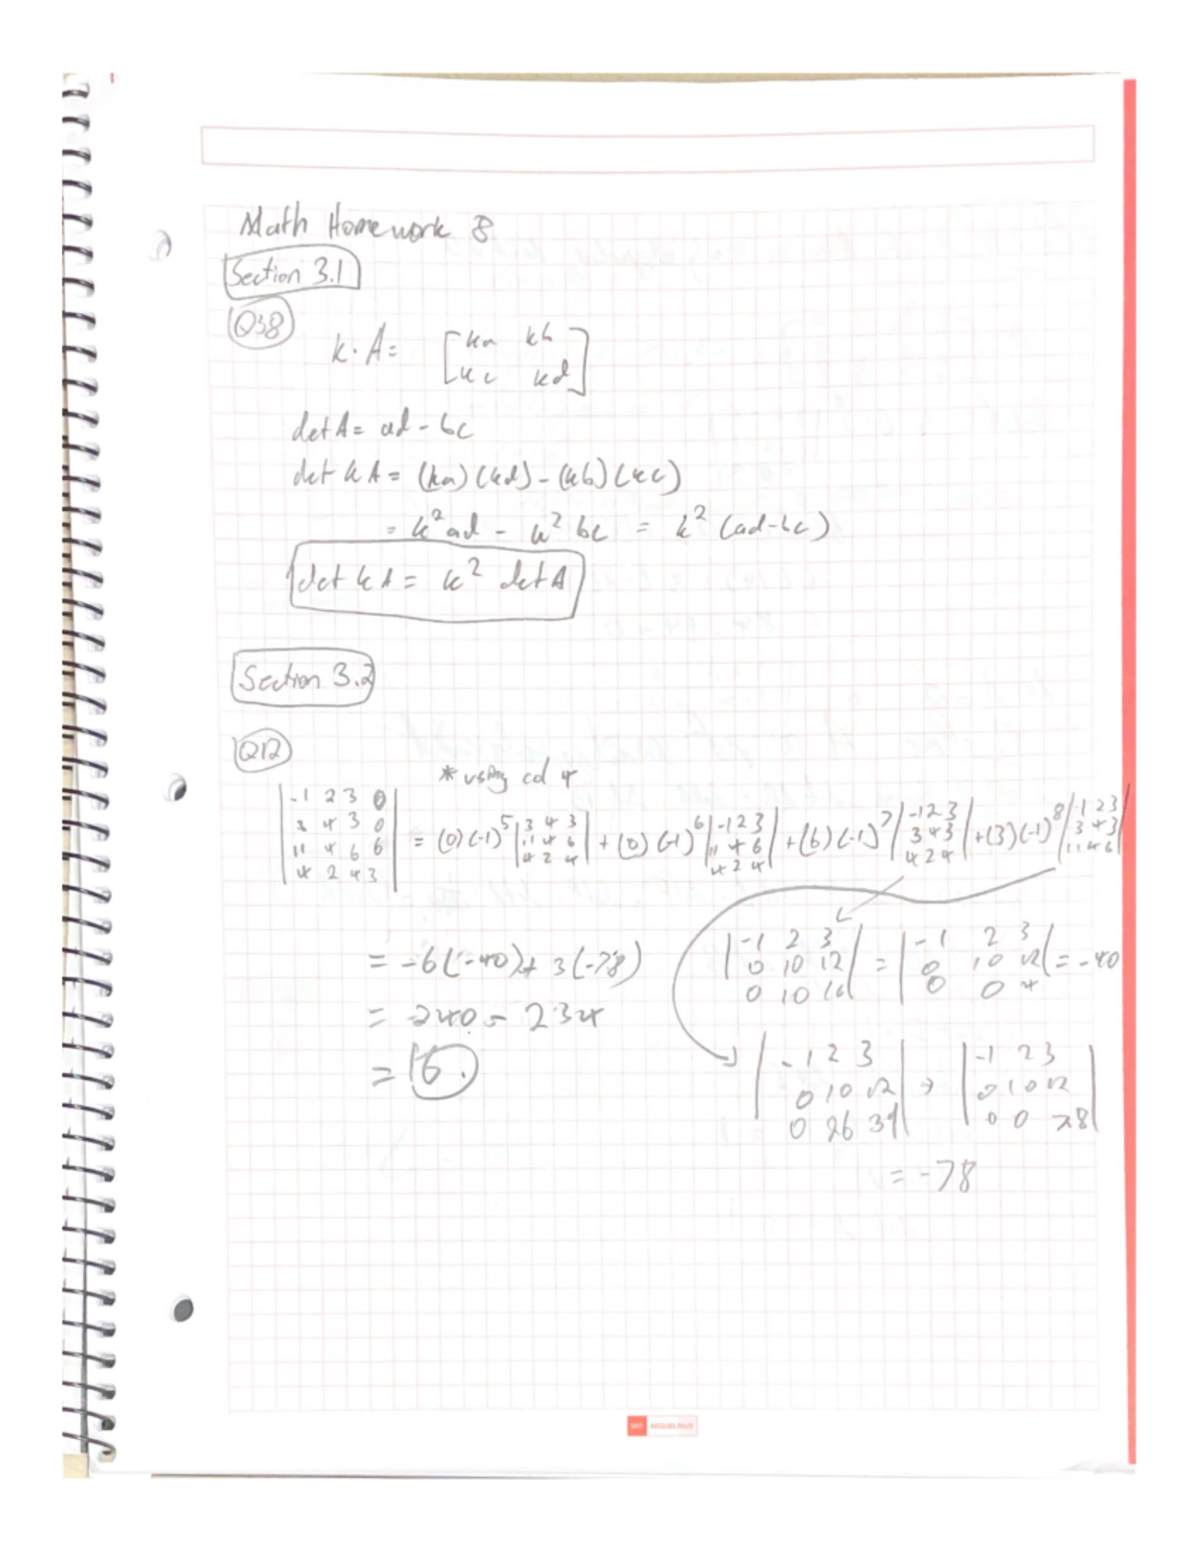 Math Homework 8
Section 3.1
Q38
k·A= [ka kb
kc kd]
det A = ad - bc
det kA = (ka)(kd) - (kb)(kc)
= k²ad - k²bc = k²(ad-bc)
det kA = k² det A
Section 3.2
Q12
* using col 4
|-1 2 3 0
3 4 3 0
11 4 6 6
4 2 4 3| = (0)(-1)⁵ |3 4 3
11 4 6
4 2 4| + (0)(-1)⁶ |-1 2 3
11 4 6
4 2 4| + (6)(-1)⁷ |-1 2 3
3 4 3
4 2 4| + (3)(-1)⁸ |-1 2 3
3 4 3
11 4 6|
= -6(-40) + 3(-78)
= 240 - 234
= 6.
|-1 2 3
0 10 12
0 10 16| = |-1 2 3
0 10 12
0 0 4| = -40
|-1 2 3
0 10 12
0 26 39| → |-1 2 3
0 10 12
0 0 78|
= -78